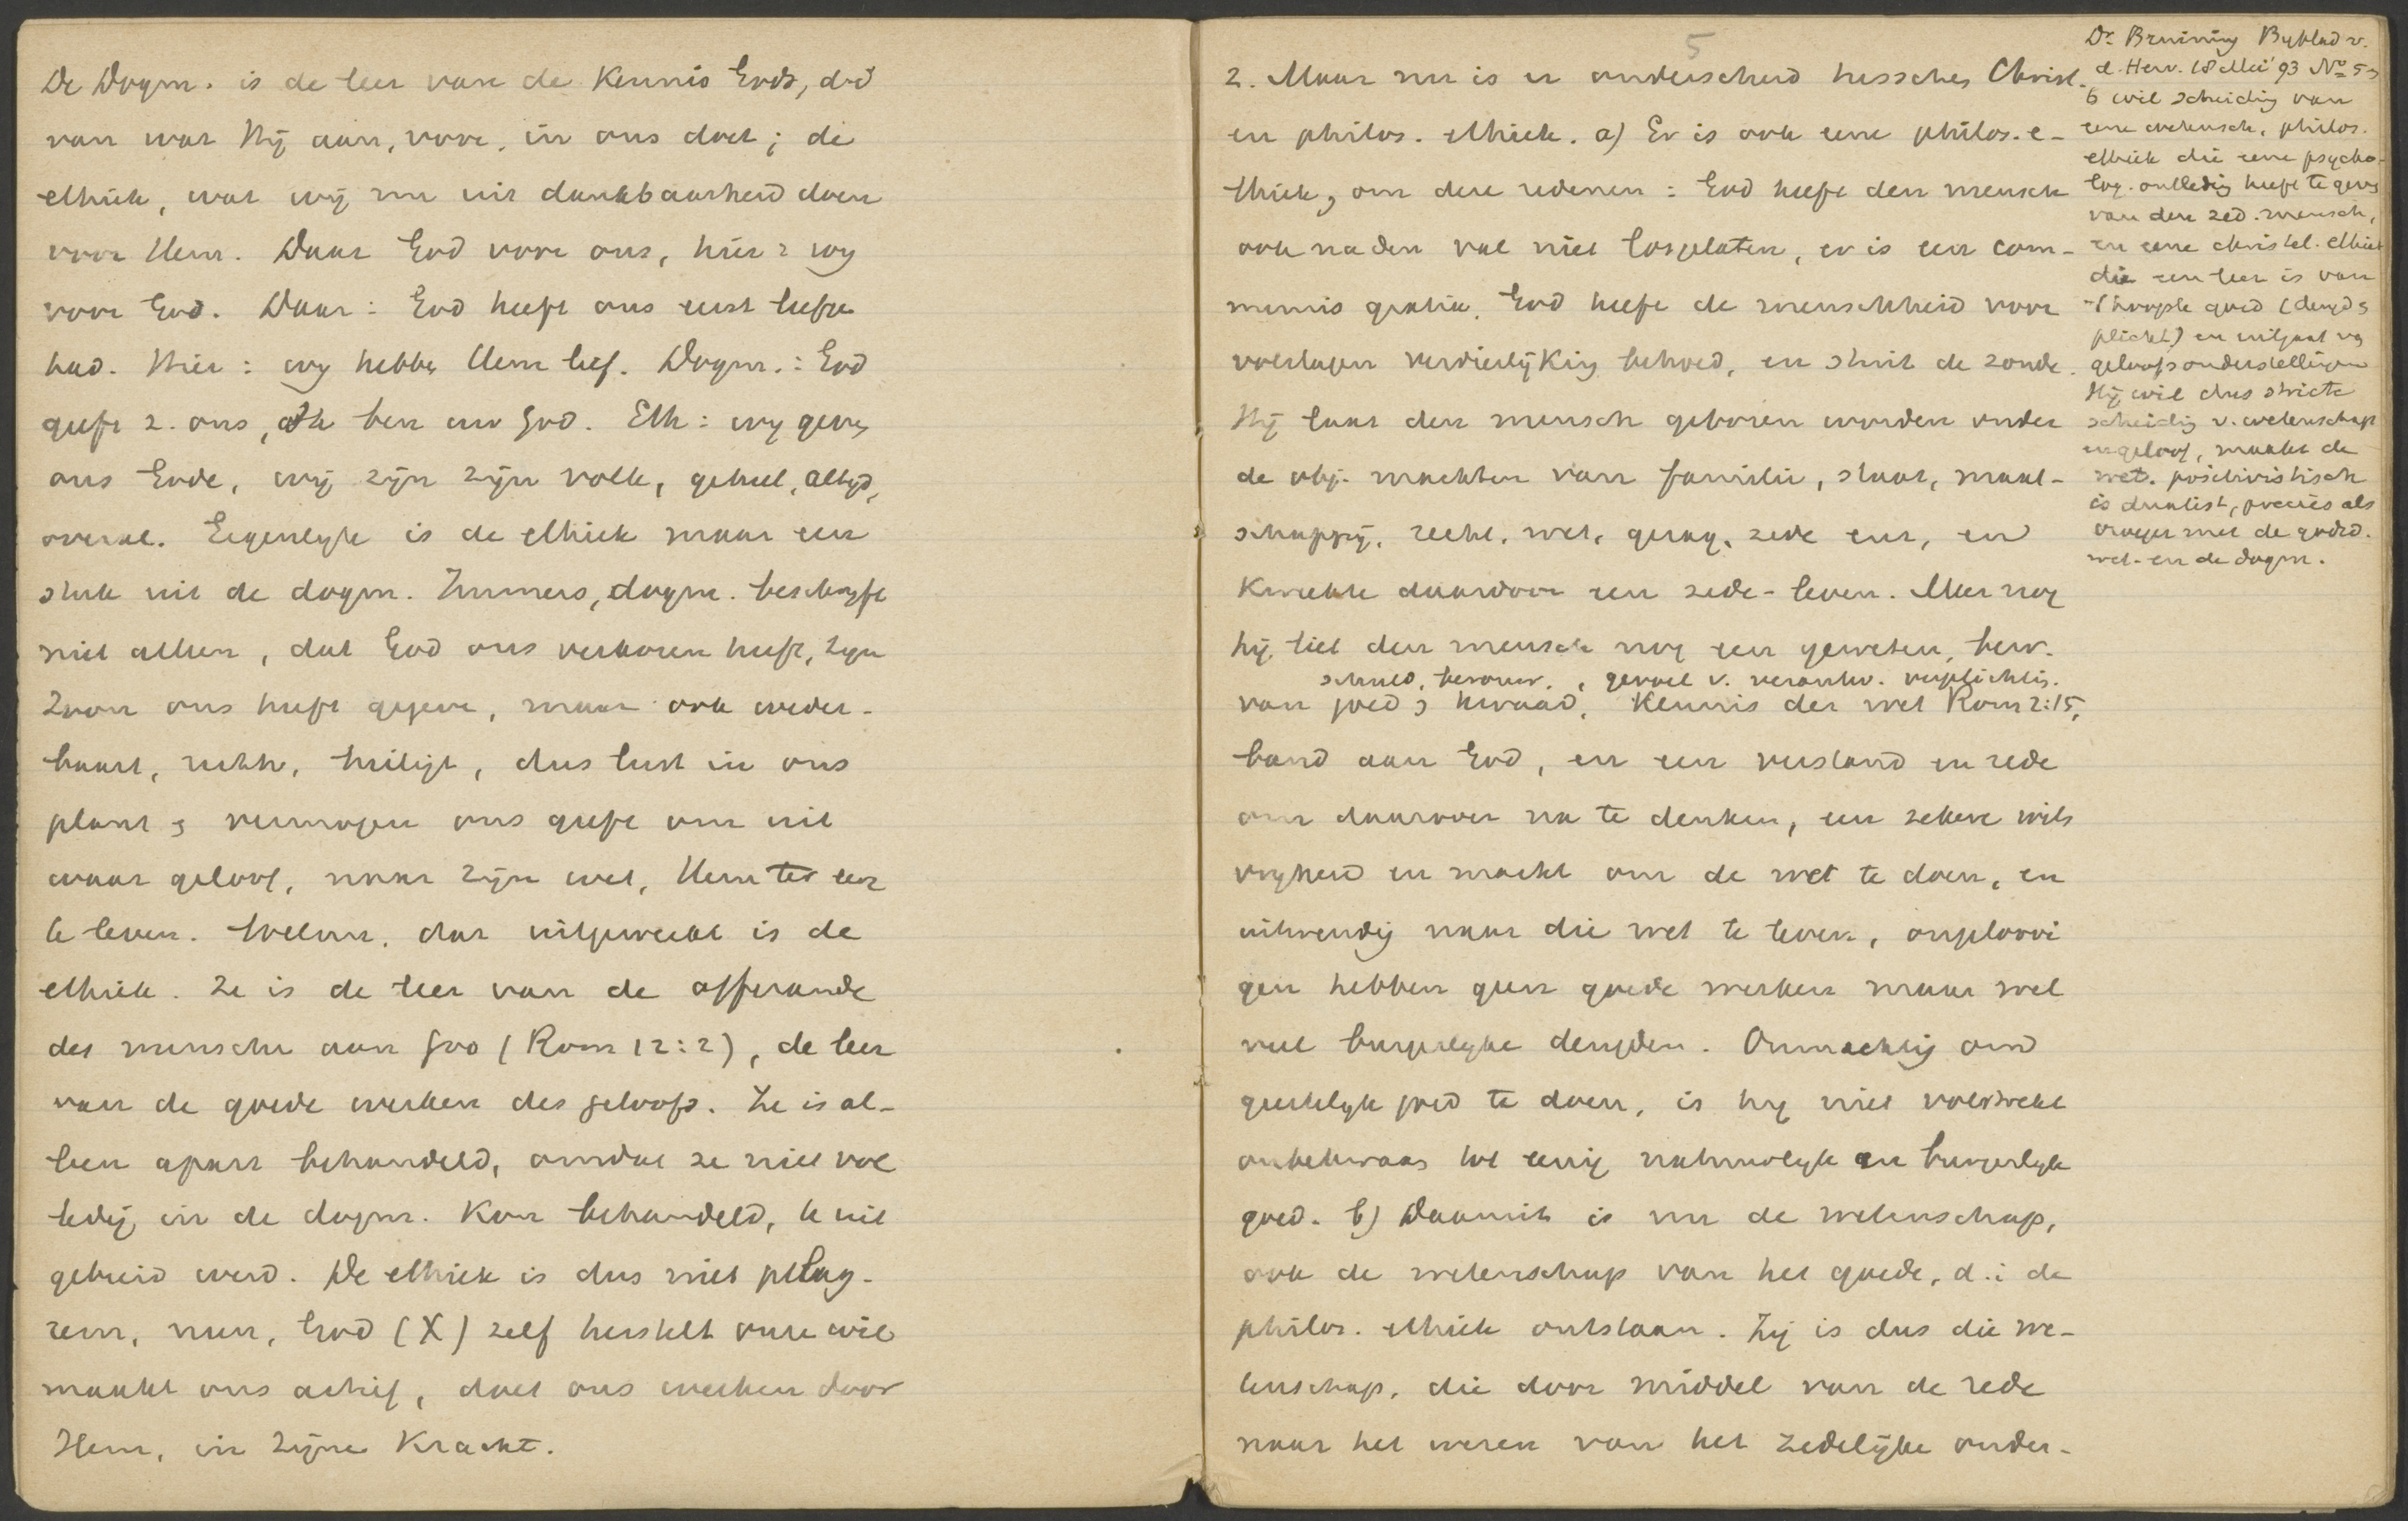 De Dogm. is de leer van de Kennis Gods, d.i.
van wat Hij aan, voor, in ons doet; de
ethiek, wat wij nu uit dankbaarheid doen
voor Hem. Daar God voor ons, hier: wij
voor God. Daar: God heeft ons eerst liefge
had. Hier: wij hebben Hem lief. Dogm.: God
geeft z. ons, ik ben uw God. Eth: wij geven
ons Gode, wij zijn zijn volk, geheel, altijd,
overal. Eigenlijk is de ethiek maar een
stuk uit de dogm. Immers, dogm. beschrijft
niet alleen, dat God ons verkoren heeft, Zijn
Zoon ons heeft gegeven, maar ook weder-
baart, rechtv, heiligt, dus lust in ons
plant & vermogen ons geeft om uit
waar geloof, naar zijn wet, Hem ter eer
te leven. Welnu, dat uitgewerkt is de
ethiek. Ze is de leer van de offerande
des menschen aan God (Rom 12:2), de leer
van de goede werken des geloofs. Ze is al-
leen apart behandeld, omdat ze niet vol
ledig in de dogm. Kon behandeld, te uit
gebreid werd. De ethiek is dus niet pelag-
iem, neen, God (X) zelf herstelt onze wil
maakt ons actief, doet ons werken door
Hem, in Zijne Kracht.
5
2. Maar nu is er onderscheid tusschen Christ.
en philos. ethiek. a) Er is ook eene philos. e-
thiek, om deze redenen: God heeft den mensch
ook na den val niet losgelaten, er is een com-
munis gratia, God heeft de menschheid voor
volslagen verdierlijking behoed, en stuit de zonde.
Hij laat den mensch geboren worden onder
de obj. machten van familie, staat, maat-
schappij, recht, wet, gezag, zede enz, en
Kweekte daardoor een zede-leven. Meer nog
hij liet den mensch nog een geweten, bew.
schuld, berouw, gevoel v. verantw. verplichtig.
van goed & kwaad, Kennis der wet Rom 2:15,
band aan God, en een verstand en rede
om daarover na te denken, een zekere wils
vrijheid en macht om de wet te doen, en
uitwendig naar die wet te leven, ongeloovi
gen hebben geen goede werken maar wel
veel burgerlijke deugden. Onmachtig om
geestelijk goed te doen, is hij niet volstrekt
onbekwaam tot eenig natuurlijk en burgerlijk
goed. b) Daaruit is nu de wetenschap,
ook de wetenschap van het goede, d.i de
philos. ethiek ontstaan. Zij is dus die we-
tenschap, die door middel van de rede
naar het wezen van het Zedelijke onder-
Dr. Bruining Bijblad v.
d. Herv. 18 Mei '93 No 5 &
6 wil scheiding van
eene wetensch. philos.
ethiek die eene psycho-
log. ontleding heeft te geven
van den zed. mensch,
en eene christel. ethiek
die een leer is van
't hoogste goed (deugd &
plicht) en uitgaat van
geloofsonderstellingen
Hij wil dus stricte
scheiding v. wetenschap
en geloof, maakt de
wet. positivistisch
is dualist, precies als
vroeger met de godsd.
wet. en de dogm.